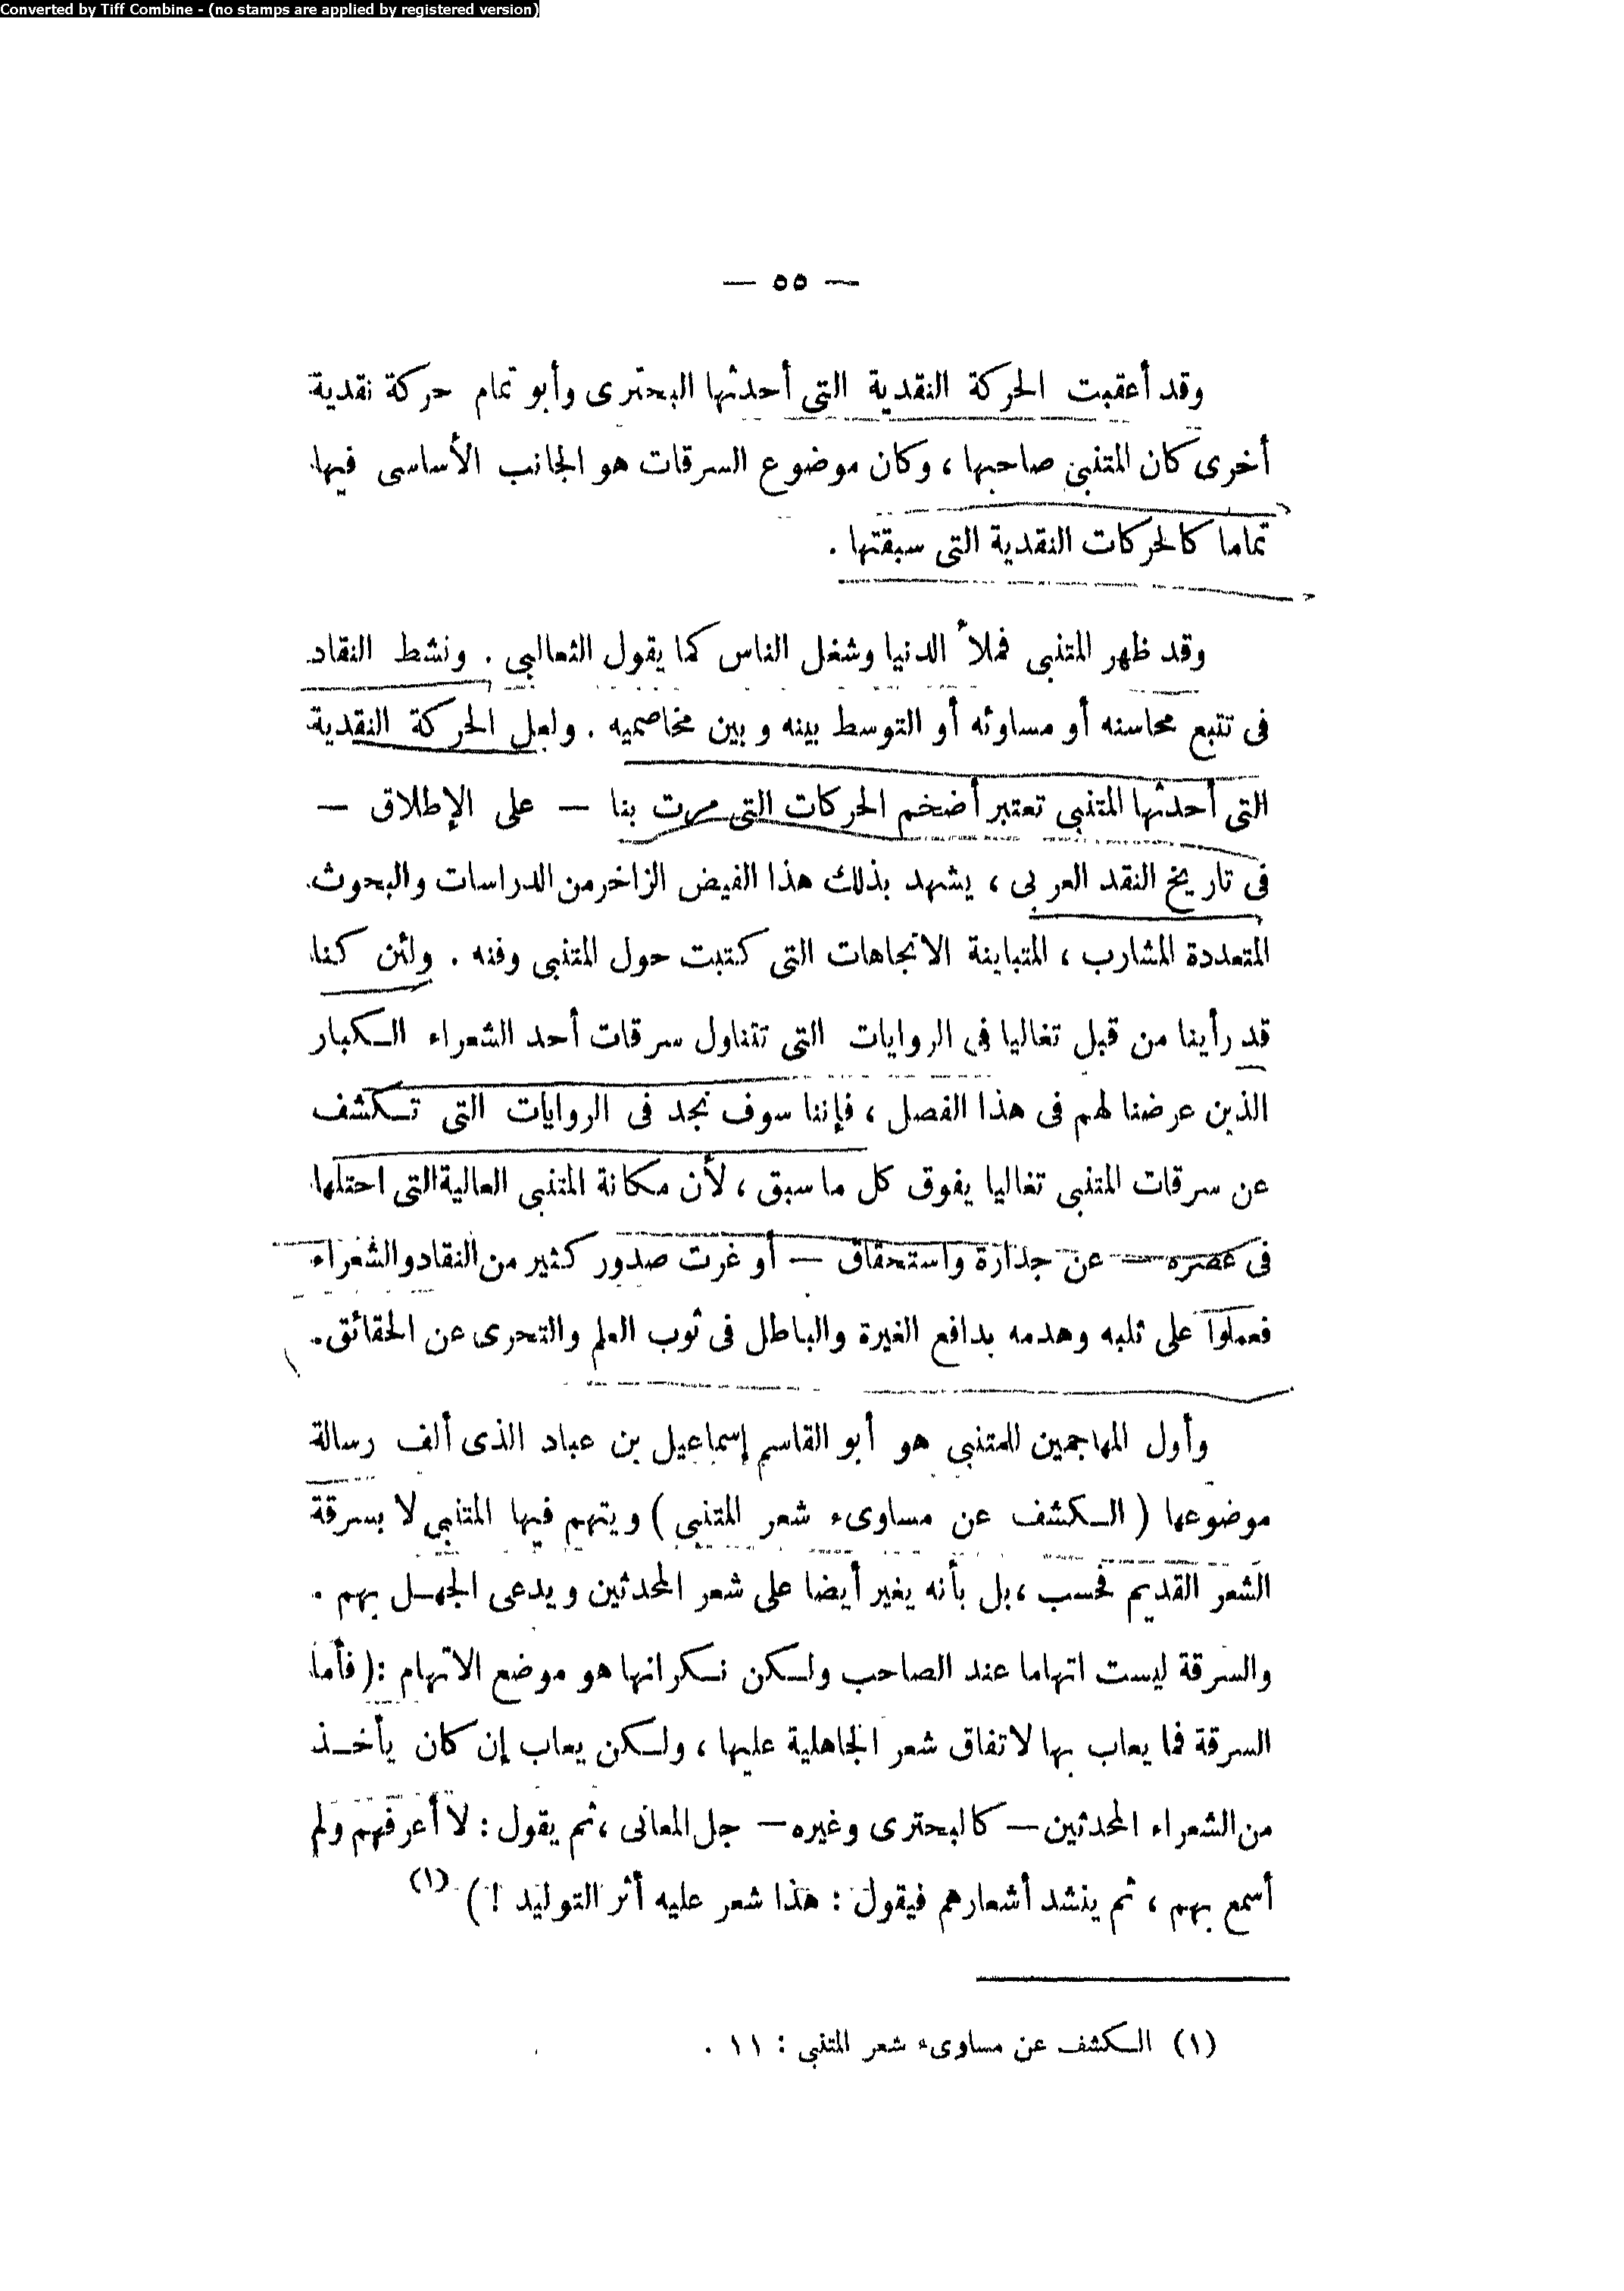 Converted by Tiff Combine - (no stamps are applied by registered version)
— ٥٥ —
وقد أعقبت الحركة النقدية التى أحدثها البحترى وأبو تمام حركة نقدية
أخرى كان المتنبى صاحبها ، وكان موضوع السرقات هو الجانب الأساسى فيها
تماما كالحركات النقدية التى سبقتها .
وقد ظهر المتنبى فملأ الدنيا وشغل الناس كما يقول الثعالبى . ونشط النقاد
فى تتبع محاسنه أو مساوئه أو التوسط بينه وبين مخاصميه . ولعل الحركة النقدية
التى أحدثها المتنبى تعتبر أضخم الحركات التى مرت بنا — على الإطلاق —
فى تاريخ النقد العربى ، يشهد بذلك هذا الفيض الزاخر من الدراسات والبحوث
المتعددة المشارب ، المتباينة الاتجاهات التى كتبت حول المتنبى وفنه . ولئن كنا
قد رأينا من قبل تغاليا فى الروايات التى تتناول سرقات أحد الشعراء الكبار
الذين عرضنا لهم فى هذا الفصل ، فإننا سوف نجد فى الروايات التى تكشف
عن سرقات المتنبى تغاليا يفوق كل ما سبق ، لأن مكانة المتنبى العالية التى احتلها
فى عصره — عن جدارة واستحقاق — أوغرت صدور كثير من النقاد والشعراء
فعملوا على ثلبه وهدمه بدافع الغيرة والباطل فى ثوب العلم والتحرى عن الحقائق .
وأول المهاجمين للمتنبى هو أبو القاسم إسماعيل بن عباد الذى ألف رسالة
موضوعها ( الكشف عن مساوىء شعر المتنبى ) ويتهم فيها المتنبى لا بسرقة
الشعر القديم فحسب ، بل بأنه يغير أيضا على شعر المحدثين ويدعى الجهل بهم .
والسرقة ليست اتهاما عند الصاحب ولكن نكرانها هو موضع الاتهام : ( فأما
السرقة فما يعاب بها لاتفاق شعر الجاهلية عليها ، ولكن يعاب إن كان يأخذ
من الشعراء المحدثين — كالبحترى وغيره — جل المعانى ، ثم يقول : لا أعرفهم ولم
أسمع بهم ، ثم ينشد أشعارهم فيقول : هذا شعر عليه أثر التوليد ! ) (١)
(١) الكشف عن مساوىء شعر المتنبى : ١١ .